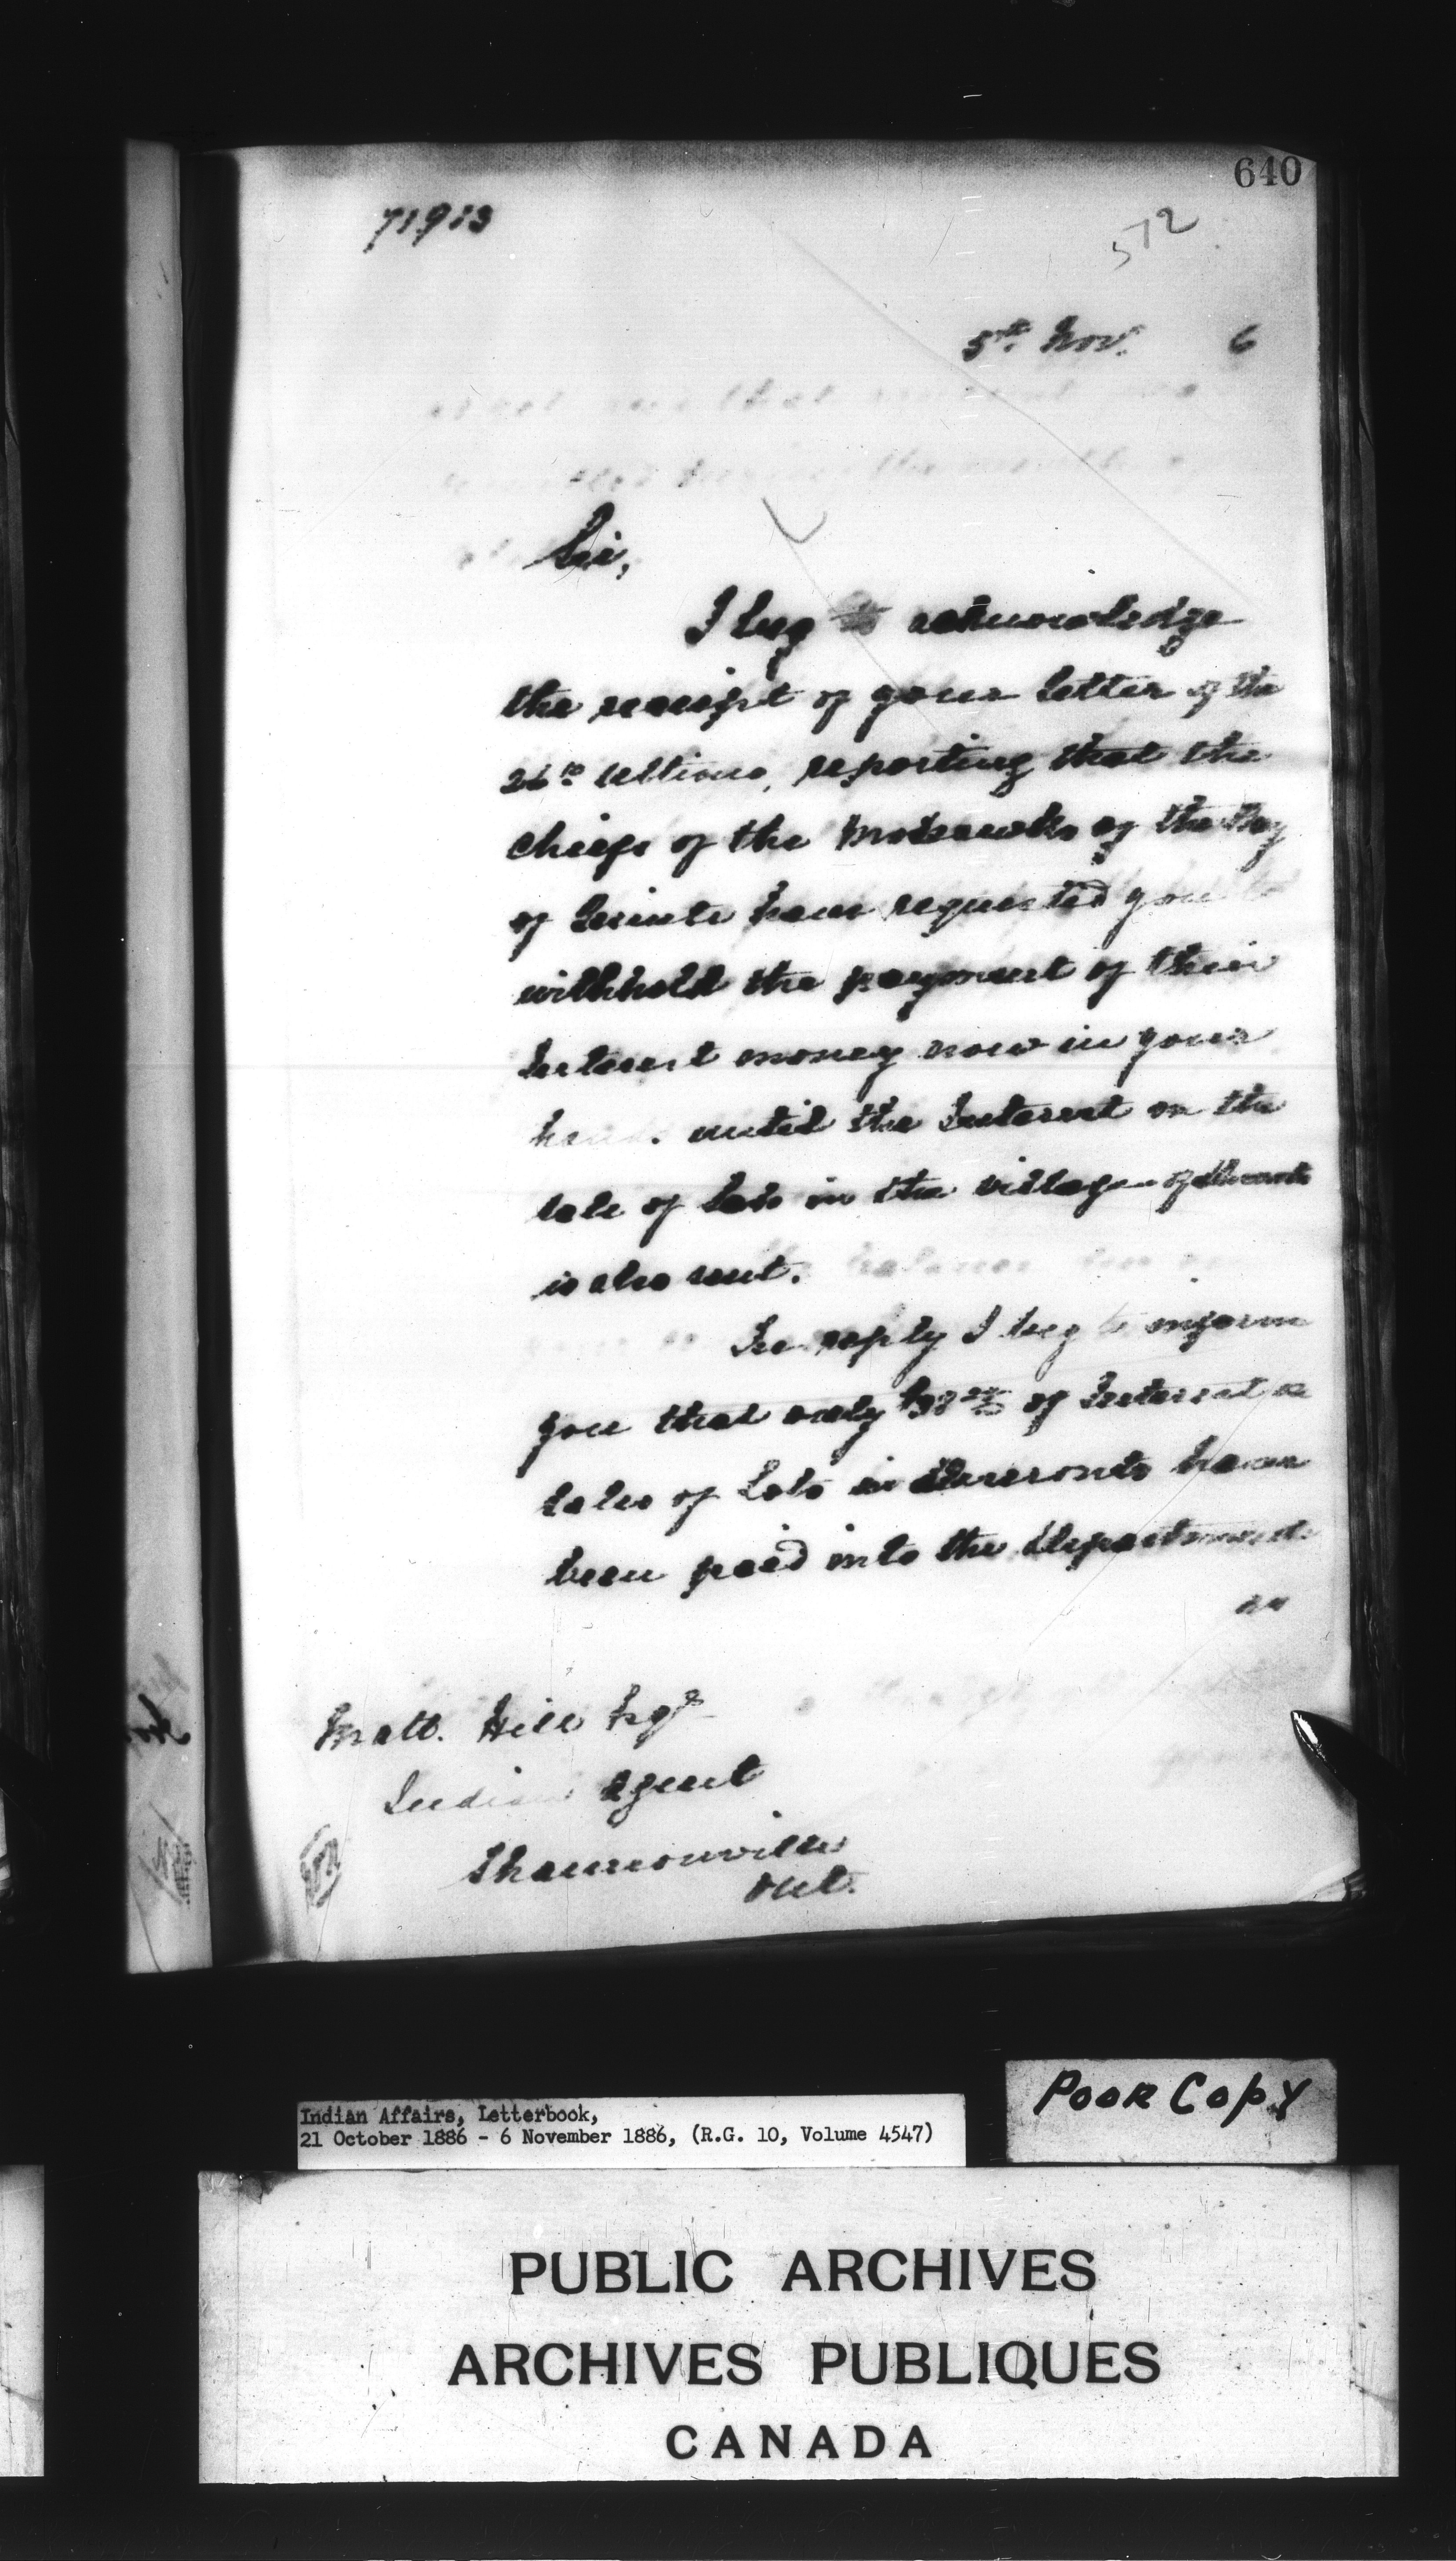 640
71913
572
5th Nov. 6
Sir,
I beg to acknowledge
the receipt of your letter of the
26th Ultimo, reporting that the
Chiefs of the Mohawks of the Bay
of Quinte have requested you to
withhold the payment of their
Interest money now in your
hands until the Interest on the
sale of Lots in the village of Deseronto
is also sent.
In reply I beg to inform
you that only of Interest on
sales of Lots in Deseronto have
been paid into the Department
as
Matt. Hill Esqr
Indian Agent
Shannonville
Ont.
Poor Copy
Indian Affairs, Letterbook,
21 October 1886 - 6 November 1886, (R.G. 10, Volume 4547)
PUBLIC ARCHIVES
ARCHIVES PUBLIQUES
CANADA